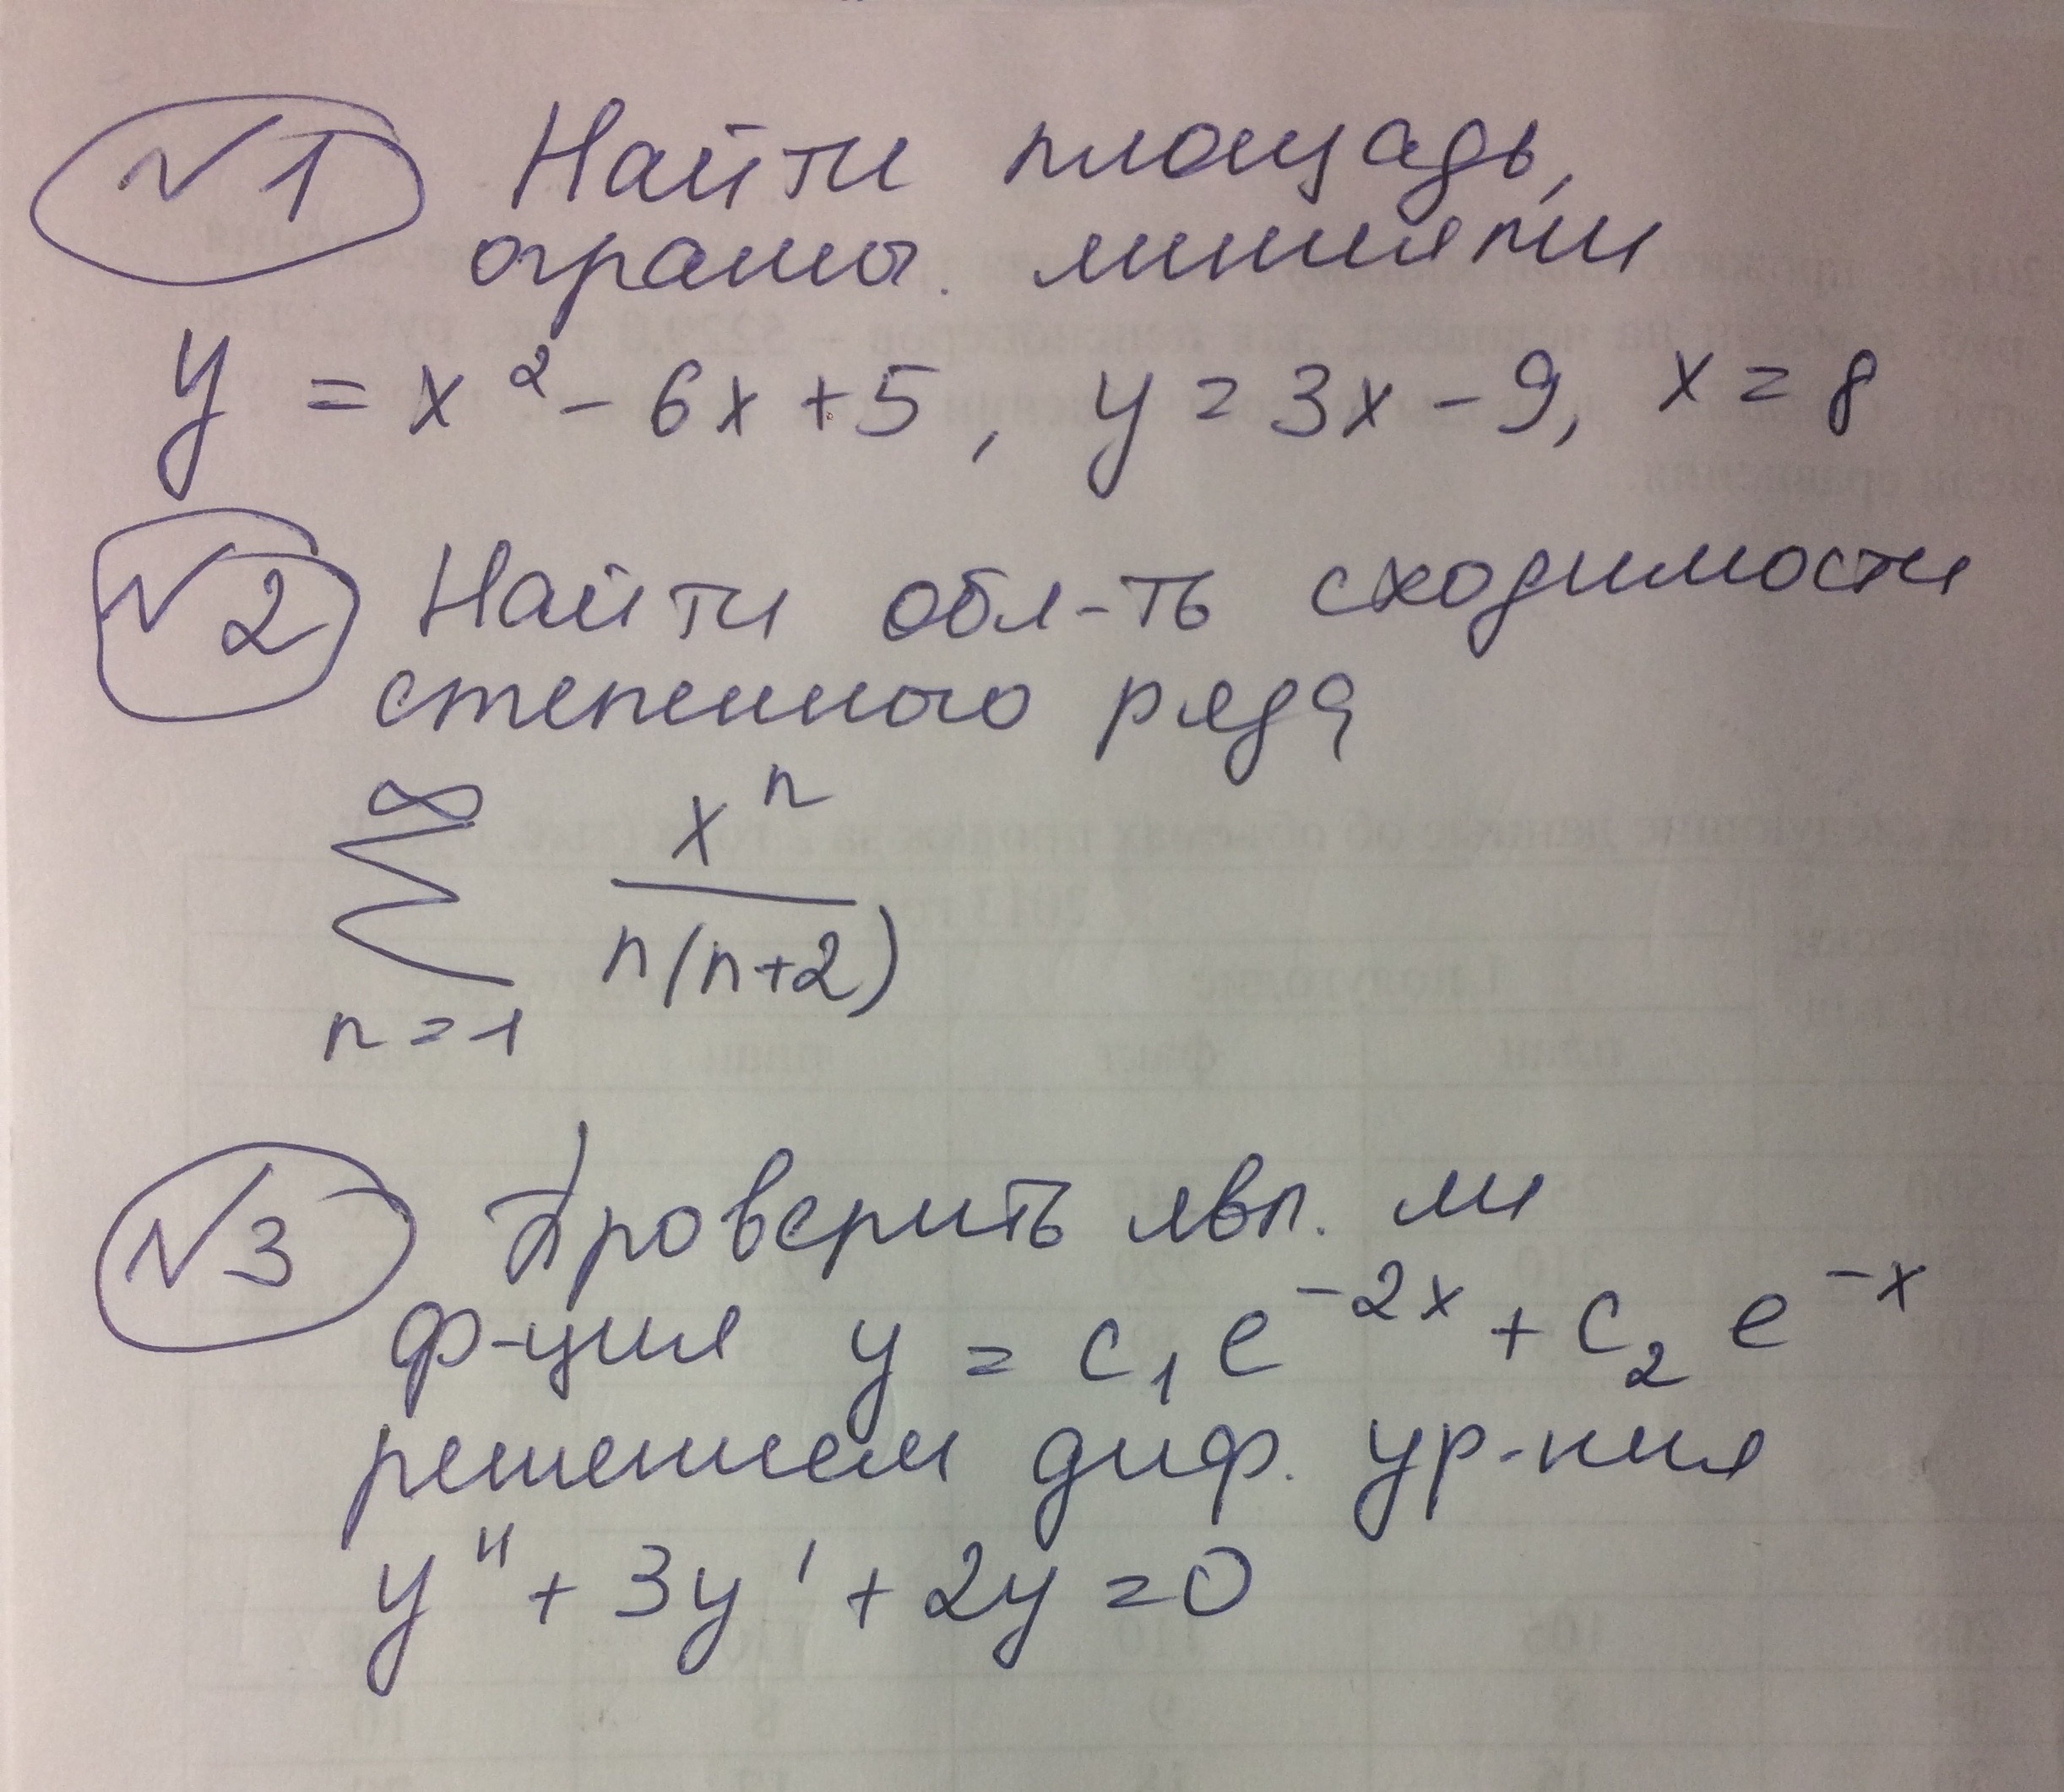 №1 Найти площадь,
огранич. линиями
y = x² - 6x + 5, y = 3x - 9, x = 8
№2 Найти обл-ть сходимости
степенного ряда
∞
∑ xⁿ / n(n+2)
n=1
№3 Проверить явл. ли
ф-ция y = c₁e⁻²ˣ + c₂e⁻ˣ
решением диф. ур-ния
y'' + 3y' + 2y = 0